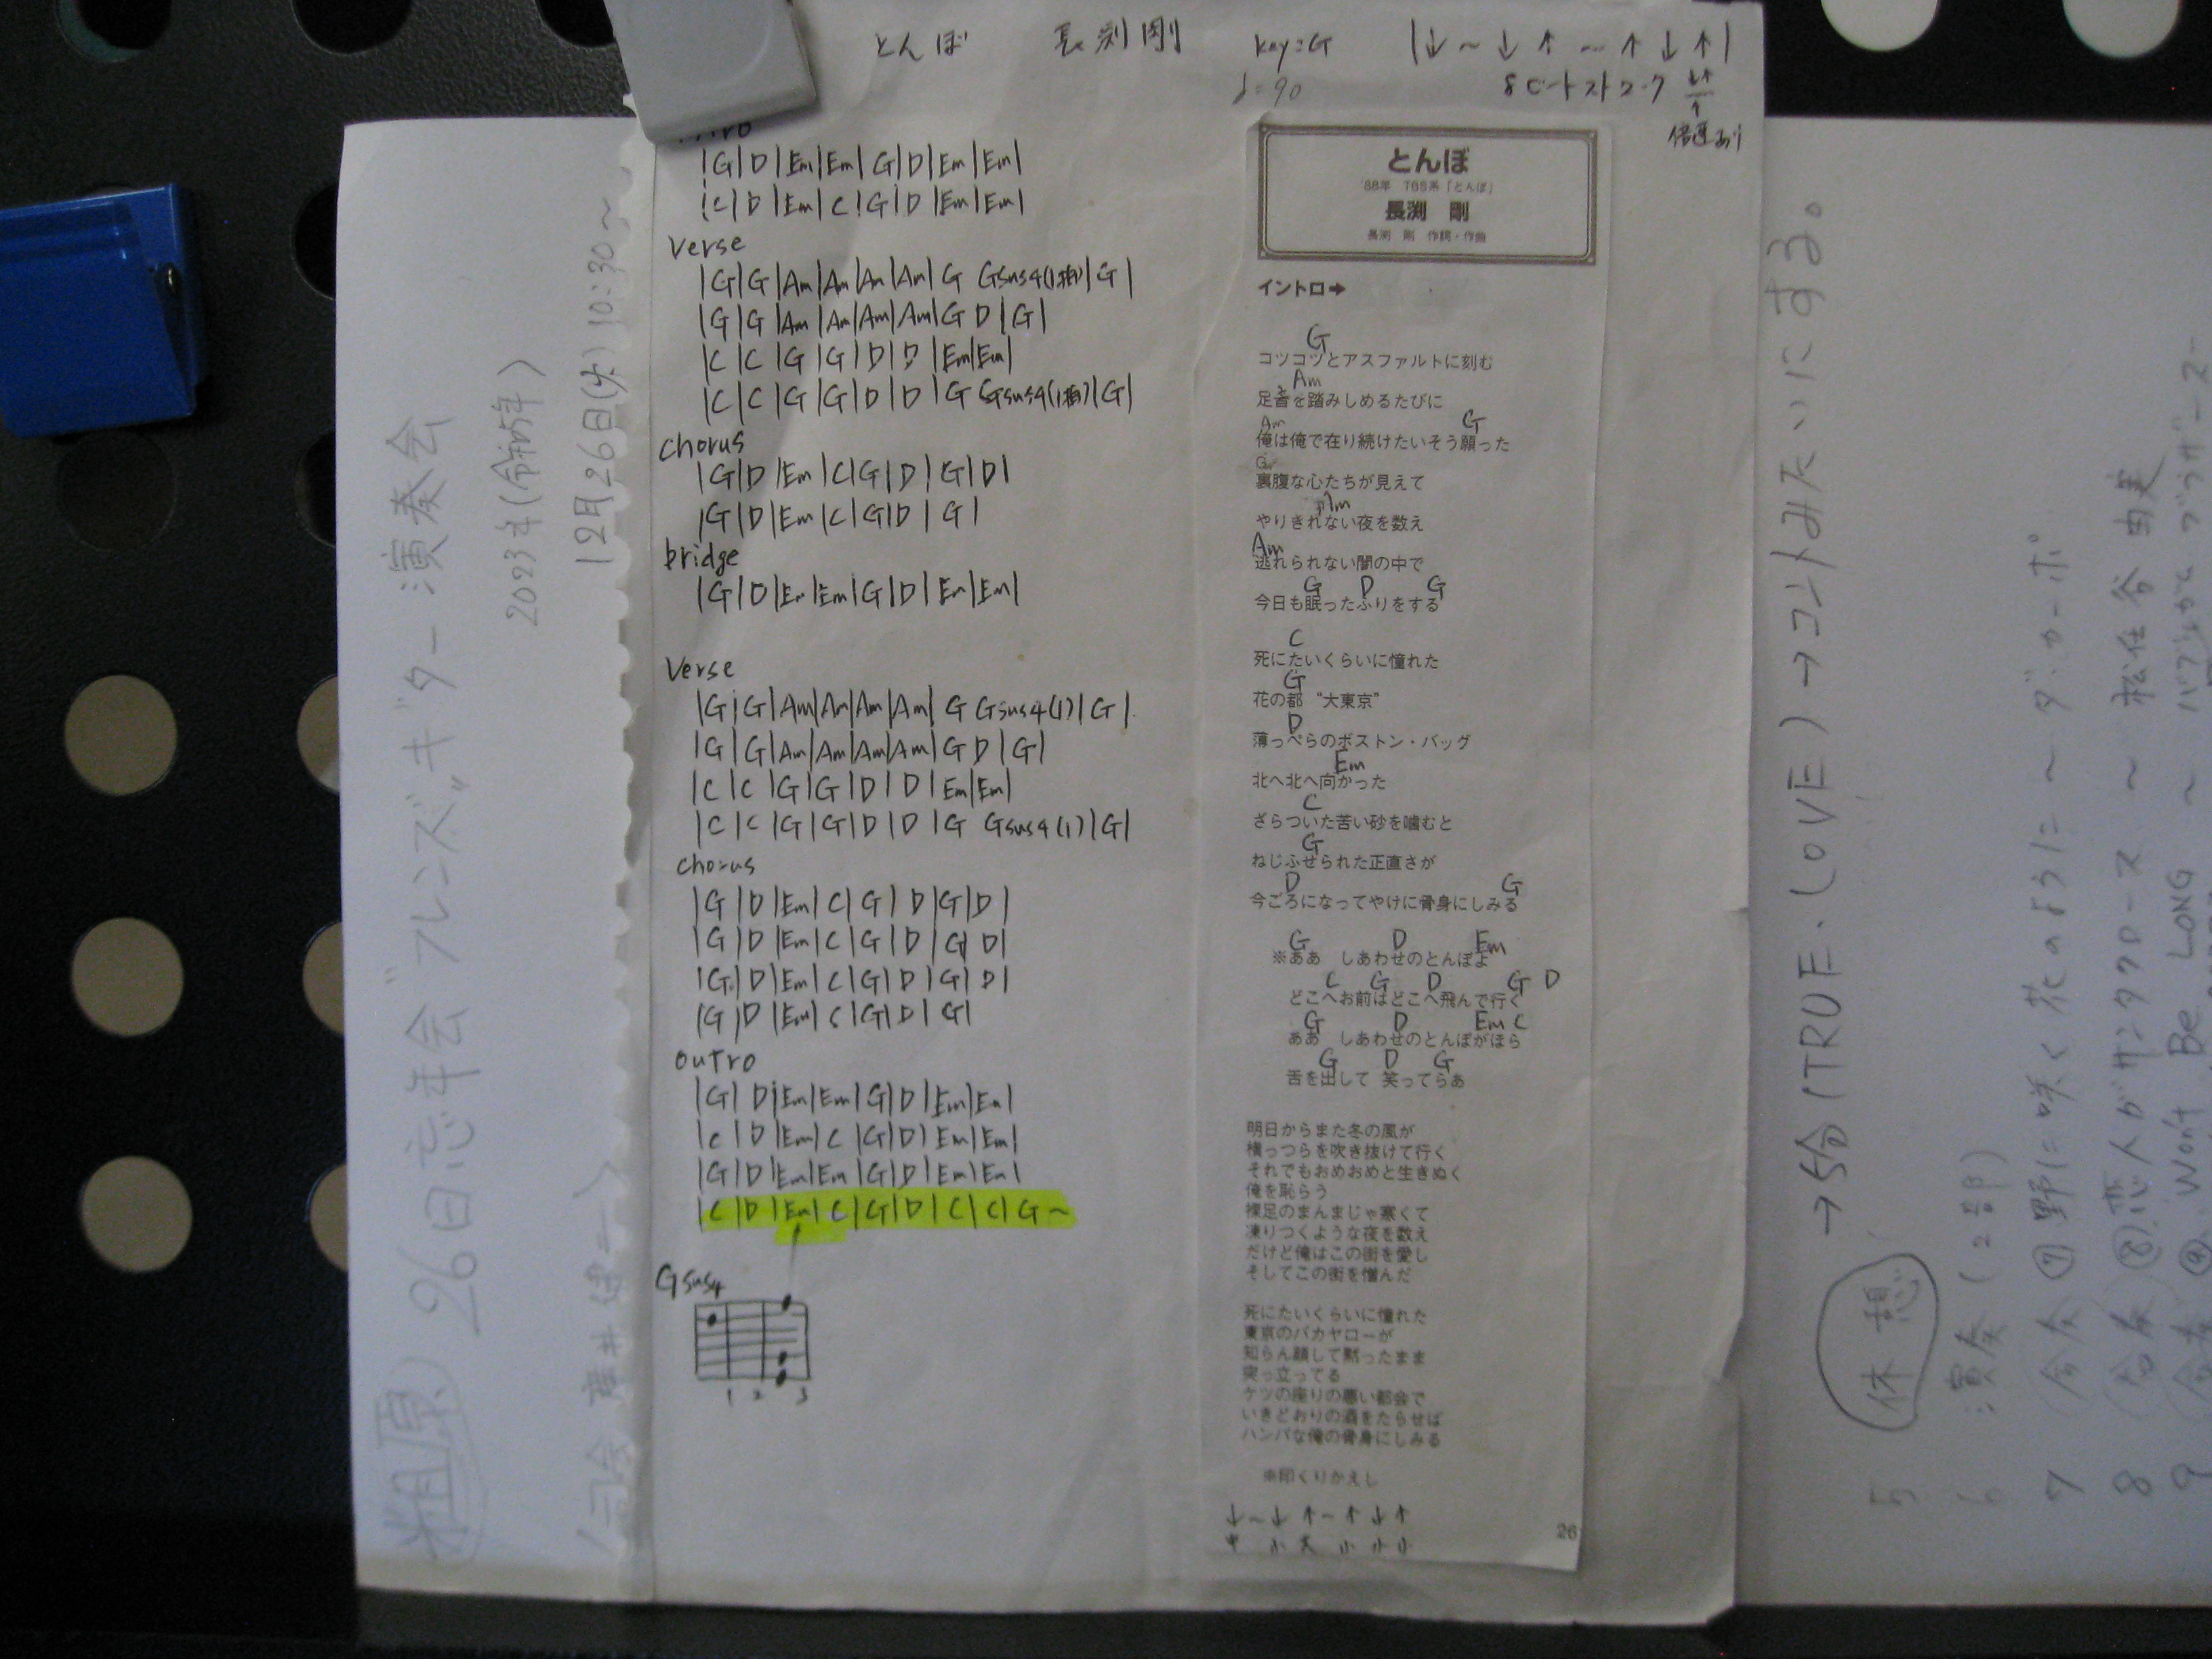 とんぼ 長渕剛 key:G |↓~↓↑~↑↓↑|
♩=90 8ビートストローク
倍速あり
|G|D|Em|Em|G|D|Em|Em|
|C|D|Em|C|G|D|Em|Em|
Verse
|G|G|Am|Am|Am|Am|G Gsus4(1拍)|G|
|G|G|Am|Am|Am|Am|G D|G|
|C|C|G|G|D|D|Em|Em|
|C|C|G|G|D|D|G Gsus4(1拍)|G|
chorus
|G|D|Em|C|G|D|G|D|
|G|D|Em|C|G|D|G|
bridge
|G|D|Em|Em|G|D|Em|Em|
Verse
|G|G|Am|Am|Am|Am|G Gsus4(1)|G|
|G|G|Am|Am|Am|Am|G D|G|
|C|C|G|G|D|D|Em|Em|
|C|C|G|G|D|D|G Gsus4(1)|G|
chorus
|G|D|Em|C|G|D|G|D|
|G|D|Em|C|G|D|G|D|
|G|D|Em|C|G|D|G|D|
|G|D|Em|C|G|D|G|
outro
|G|D|Em|Em|G|D|Em|Em|
|C|D|Em|C|G|D|Em|Em|
|G|D|Em|Em|G|D|Em|Em|
|C|D|Em|C|G|D|C|C|G~
Gsus4
1 2 3
とんぼ
'88年 TBS系「とんぼ」
長渕 剛
長渕 剛 作詞・作曲
イントロ➜
G
コツコツとアスファルトに刻む
Am
足音を踏みしめるたびに
Am G
俺は俺で在り続けたいそう願った
G
裏腹な心たちが見えて
Am
やりきれない夜を数え
Am
逃れられない闇の中で
G D G
今日も眠ったふりをする
C
死にたいくらいに憧れた
G
花の都 “大東京”
D
薄っぺらのボストン・バッグ
Em
北へ北へ向かった
C
ざらついた苦い砂を噛むと
G
ねじふせられた正直さが
D G
今ごろになってやけに骨身にしみる
G D Em
※ああ しあわせのとんぼよ
C G D G D
どこへお前はどこへ飛んで行く
G D Em C
ああ しあわせのとんぼがほら
G D G
舌を出して 笑ってらあ
明日からまた冬の風が
横っつらを吹き抜けて行く
それでもおめおめと生きぬく
俺を恥らう
裸足のまんまじゃ寒くて
凍りつくような夜を数え
だけど俺はこの街を愛し
そしてこの街を憎んだ
死にたいくらいに憧れた
東京のバカヤローが
知らん顔して黙ったまま
突っ立ってる
ケツの座りの悪い都会で
いきどおりの酒をたらせば
ハンパな俺の骨身にしみる
※印くりかえし
↓~↓↑~↑↓↑
中 小 大 小 小 小
26
26日忘年会“フレンズ”ギター演奏会
2023年(令和5年)
12月26日(火)10:30~
→(TRUE.(OVE)→コントみたいにする。
5 休憩
6 演奏(2部)
7 ⑦野に咲く花のように~ダ・カーポ
8 ⑧恋人がサンタクロース~松任谷由実
9 ⑨Won't Be LONG~